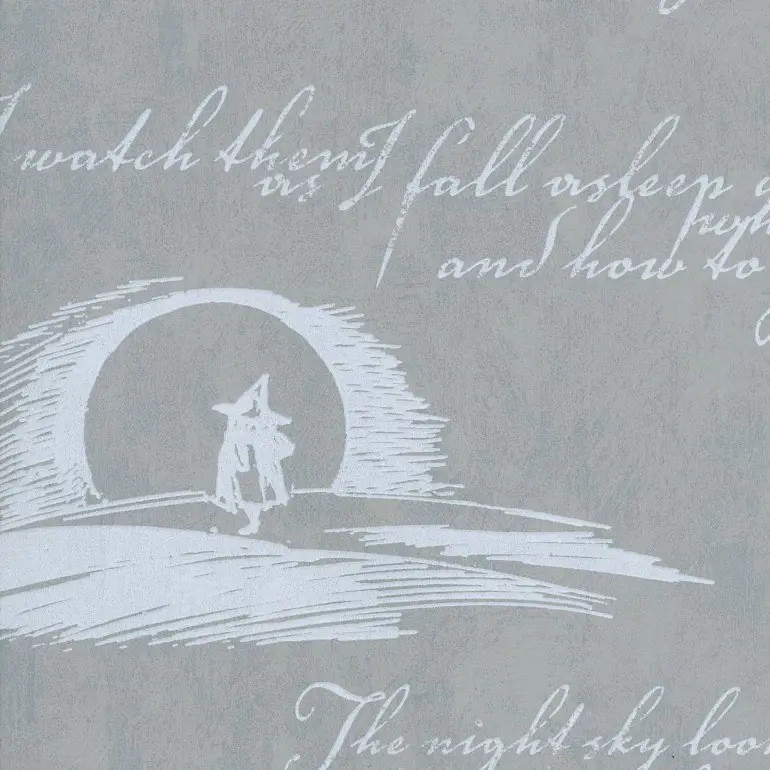 I watch them as I fall asleep
and how to
The night sky